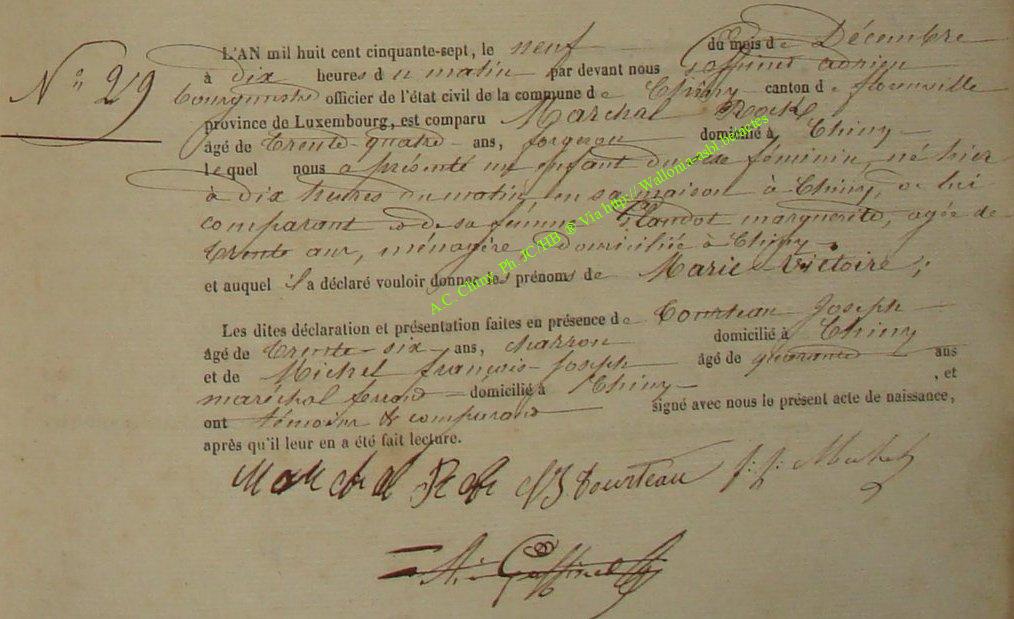 N° 29
L'AN mil huit cent cinquante-sept, le neuf du mois de Décembre
à dix heures du matin par devant nous Goffinet adrien
bourgmestre officier de l'état civil de la commune de Chiny canton de florenville
province de Luxembourg, est comparu Marchal Roch
âgé de trente-quatre ans, forgeron domicilié à Chiny
lequel nous a présenté un enfant du sexe féminin, né hier
à dix heures du matin, en sa maison à Chiny, de lui
comparant & de sa femme marguerite, agée de
trente ans, ménagère domiciliée à Chiny
et auquel il a déclaré vouloir donner les prénoms de Marie-Victoire;
Les dites déclaration et présentation faites en présence de Tourteau Joseph
âgé de trente-six ans, charron domicilié à Chiny
et de Michel françois-Joseph âgé de quarante ans
maréchal ferrand domicilié à Chiny , et
ont témoins & comparant signé avec nous le présent acte de naissance,
après qu'il leur en a été fait lecture.
Marchal Roch J Tourteau f. j. Michel
A. Goffinet
A.C. Chiny Ph JC/HB ® Via http://Wallonia-asbl.be/actes